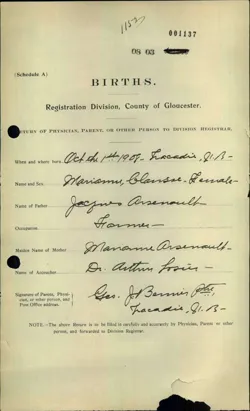 1153
001137
08 03
(Schedule A)
BIRTHS.
Registration Division, County of Gloucester.
RETURN OF PHYSICIAN, PARENT, OR OTHER PERSON TO DIVISION REGISTRAR.
When and where born, Oct the 1st 1907. Tracadie, N.B-
Name and Sex, Marianne, Female-
Name of Father Jacques Arsenault
Occupation, Farmer-
Maiden Name of Mother Marianne Arsenault-
Name of Accoucher, Dr. Arthur Losier-
Signature of Parent, Physician, or other person, and Post Office address. Geo. J. Bernier
Tracadie, N.B-
NOTE.—The above Return is to be filed in carefully and accurately by Physician, Parent or other
person, and forwarded to Division Registrar.